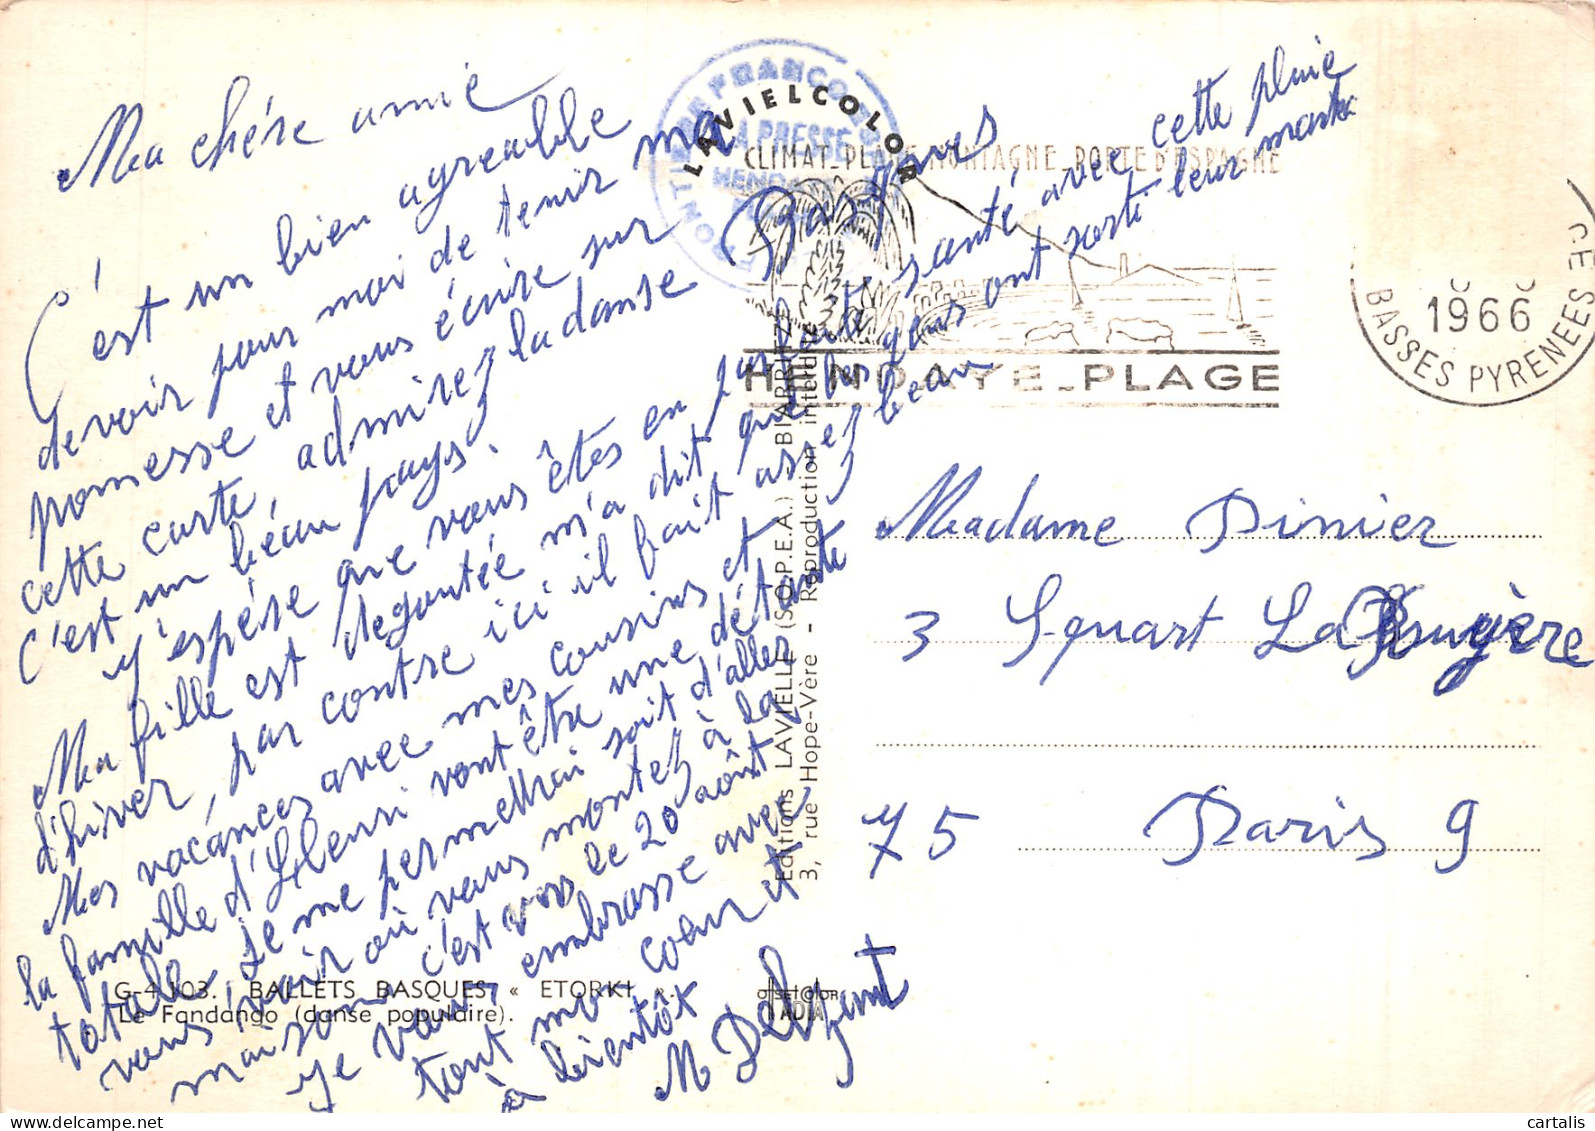 Ma chère amie
C'est un bien agréable
devoir pour moi de tenir ma
promesse et vous écrire sur
cette carte, admirez la danse Basques
c'est un béau pays.
J'espère que vous êtes en parfaite santé avec cette pluie
Ma fille est degoutée m'a dit que les gens ont sorti leur manteau
d'hiver, par contre ici il fait assez beau
Mes vacances avec mes cousins et
la famille d'Henri vont être une détante
totale. Je me permettrai soit d'aller
vous voir où vous montez à la
maison c'est vers le 20 août
Je vous embrasse avec
tout mon cœur et
à bientôt
M Delzant
FRONTIERE FRANCO
LA PRESSE
HENDAYE
PLAGE
LAVIELCOLOR
CLIMAT_PLAGE MONTAGNE PORTE D'ESPAGNE
HENDAYE_PLAGE
1966
BASSES PYRENEES
Madame Pinier
3 Squart La Bruyère
75 Paris 9
Editions LAVIELLE (S.O.P.E.A.) - BIARRITZ
3, rue Hope-Vère - Reproduction interdite
G-4.103. BALLETS BASQUES « ETORKI »
Le Fandango (danse populaire).
OFFSETCOLOR
IADIA
cartalis